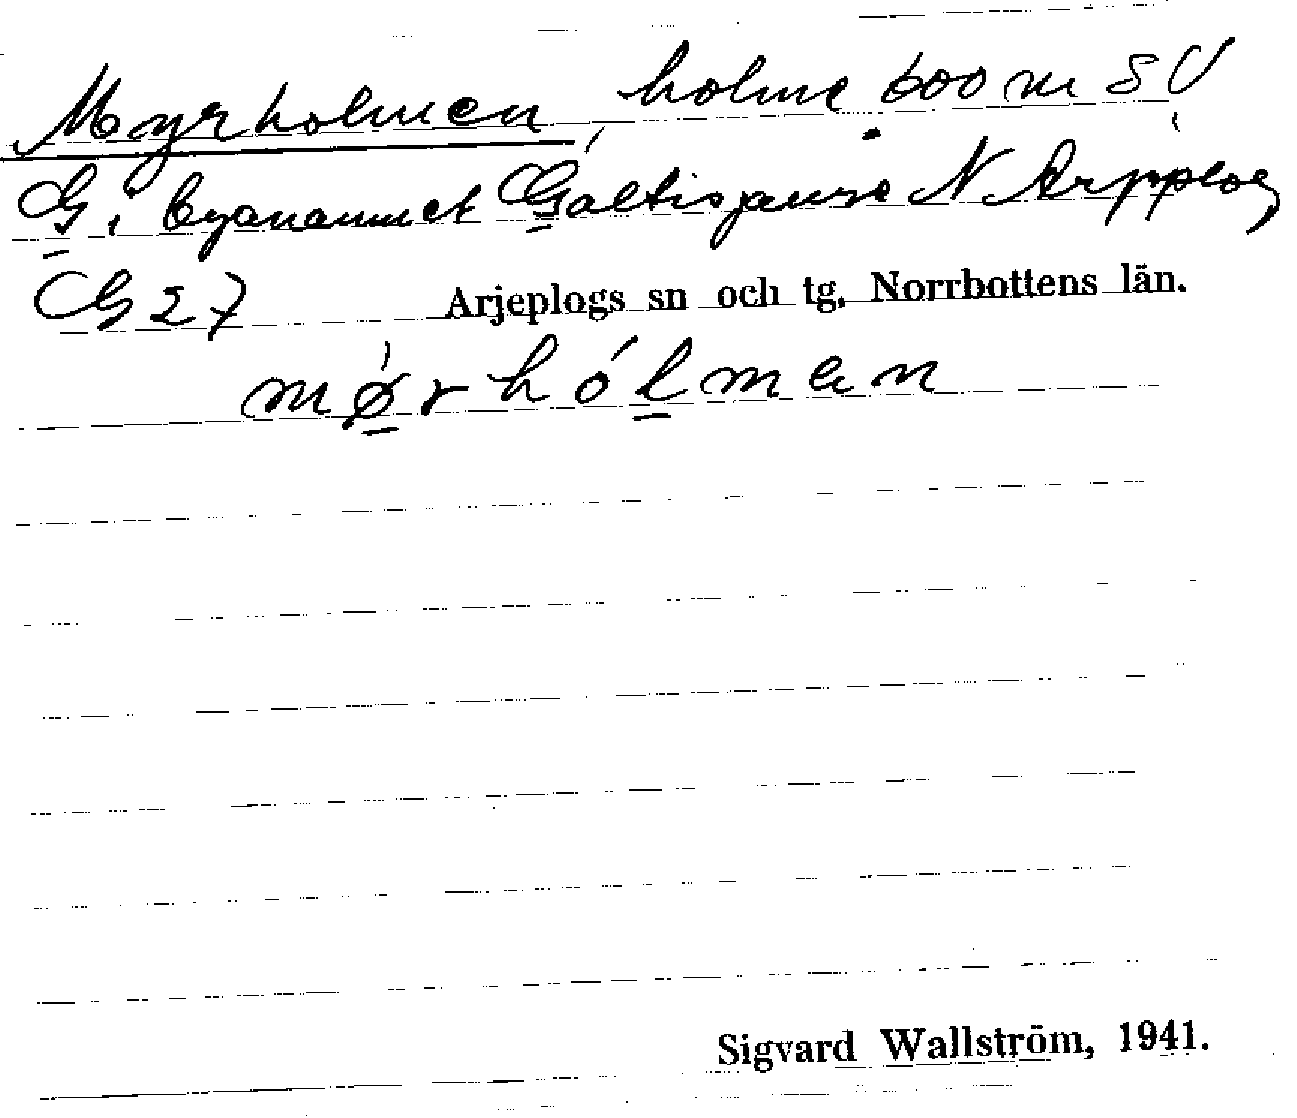 Myrholmen, holme 600 m SV
G i byanamnet Galtisjaure N Arjeplog,
G 27 Arjeplogs sn och tg, Norrbottens län.
mǿrhólmen
Sigvard Wallström, 1941.